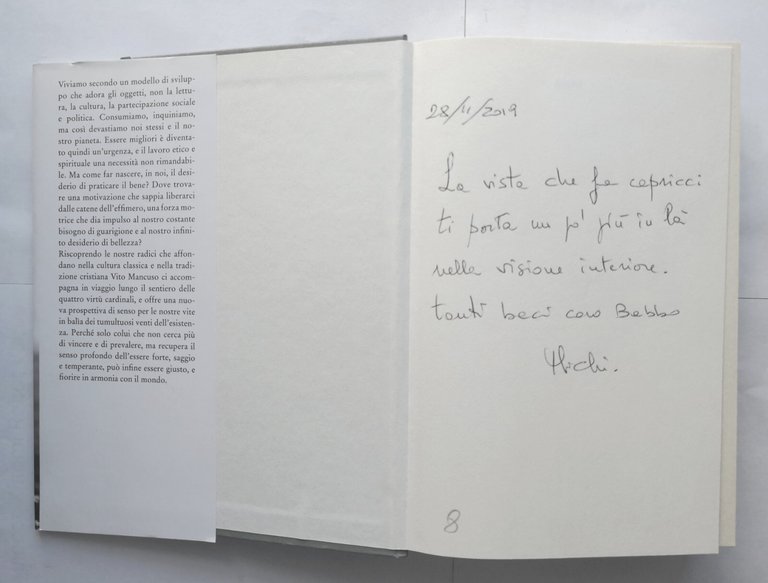 Viviamo secondo un modello di svilup-
po che adora gli oggetti, non la lettu-
ra, la cultura, la partecipazione sociale
e politica. Consumiamo, inquiniamo,
ma così devastiamo noi stessi e il no-
stro pianeta. Essere migliori è diventa-
to quindi un'urgenza, e il lavoro etico e
spirituale una necessità non rimandabi-
le. Ma come far nascere, in noi, il desi-
derio di praticare il bene? Dove trova-
re una motivazione che sappia liberarci
dalle catene dell'effimero, una forza mo-
trice che dia impulso al nostro costante
bisogno di guarigione e al nostro infini-
to desiderio di bellezza?
Riscoprendo le nostre radici che affon-
dano nella cultura classica e nella tradi-
zione cristiana Vito Mancuso ci accom-
pagna in viaggio lungo il sentiero delle
quattro virtù cardinali, e offre una nuo-
va prospettiva di senso per le nostre vite
in balia dei tumultuosi venti dell'esisten-
za. Perché solo colui che non cerca più
di vincere e di prevalere, ma recupera il
senso profondo dell'essere forte, saggio
e temperante, può infine essere giusto, e
fiorire in armonia con il mondo.
28/11/2019
La vista che fa capricci
ti porta un po' più in là
nella visione interiore.
tanti baci caro Babbo
Michi.
8